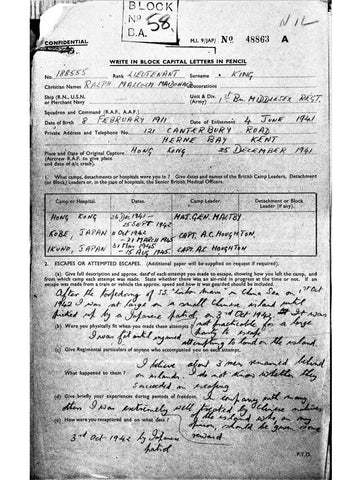 BLOCK
Nº 58.
B.A.
NIL
CONFIDENTIAL
M.I. 9/JAP/ Nº 48863 A
WRITE IN BLOCK CAPITAL LETTERS IN PENCIL
No. 188555 Rank LIEUTENANT Surname KING
Christian Names RALPH MALCOLM MACDONALD Decorations
Ship (R.N., U.S.N. or Merchant Navy Unit & Div. (Army) 1st Bn. MIDDLESEX REGT.
Squadron and Command (R.A.F., A.A.F.)
Date of Birth 8 FEBRUARY 1911 Date of Enlistment 4 JUNE 1941
Private Address and Telephone No. 121 CANTERBURY ROAD
HERNE BAY KENT
Place and Date of Original Capture HONG KONG 25 DECEMBER 1941
(Aircrew R.A.F. to give place and date of a/c crash).
1. What camps, detachments or hospitals were you in? Give dates and names of the British Camp Leaders, Detachment (or Block) Leaders or, in the case of hospitals, the Senior British Medical Officers.
Camp or Hospital. Dates. Camp Leader. Detachment or Block Leader (if any).
HONG KONG 26 Dec 1941 - 25 SEPT 1942 MAJ. GEN. MALTBY
KOBE, JAPAN 10 Oct 1942 - 21 MARCH 1945 CAPT. A.C. HOUGHTON
IKUNO, JAPAN 31 May 1945 - 15 AUG 1945 CAPT. A.C. HOUGHTON.
2. ESCAPES OR ATTEMPTED ESCAPES. (Additional paper will be supplied on request if required).
(a) Give full description and approx. date of each attempt you made to escape, showing how you left the camp, and from which camp each attempt was made. State whether there was an air-raid in progress at the time. If an escape was made from a train or vehicle the approx. speed and how it was guarded should be included.
After the torpedoing of S.S. "Lisbon Maru" in China Sea on 1st Oct
1942 I was at large on a small Chinese island until
picked up by a Japanese patrol on 3rd Oct 1942. It was
not practicable for a large party to escape
(b) Were you physically fit when you made these attempts?
I was fit until injured attempting to land on the island.
(c) Give Regimental particulars of anyone who accompanied you on each attempt.
What happened to them? I believe about 3 men remained behind
on island. I do not know whether they
succeeded in escaping
(d) Give briefly your experiences during periods of freedom. In company with many
others I was extremely well treated by Chinese natives
of the island who in my
opinion, should be given some
reward.
(e) How were you recaptured and on what date?
3rd Oct 1942 by Japanese
patrol
P.T.O.